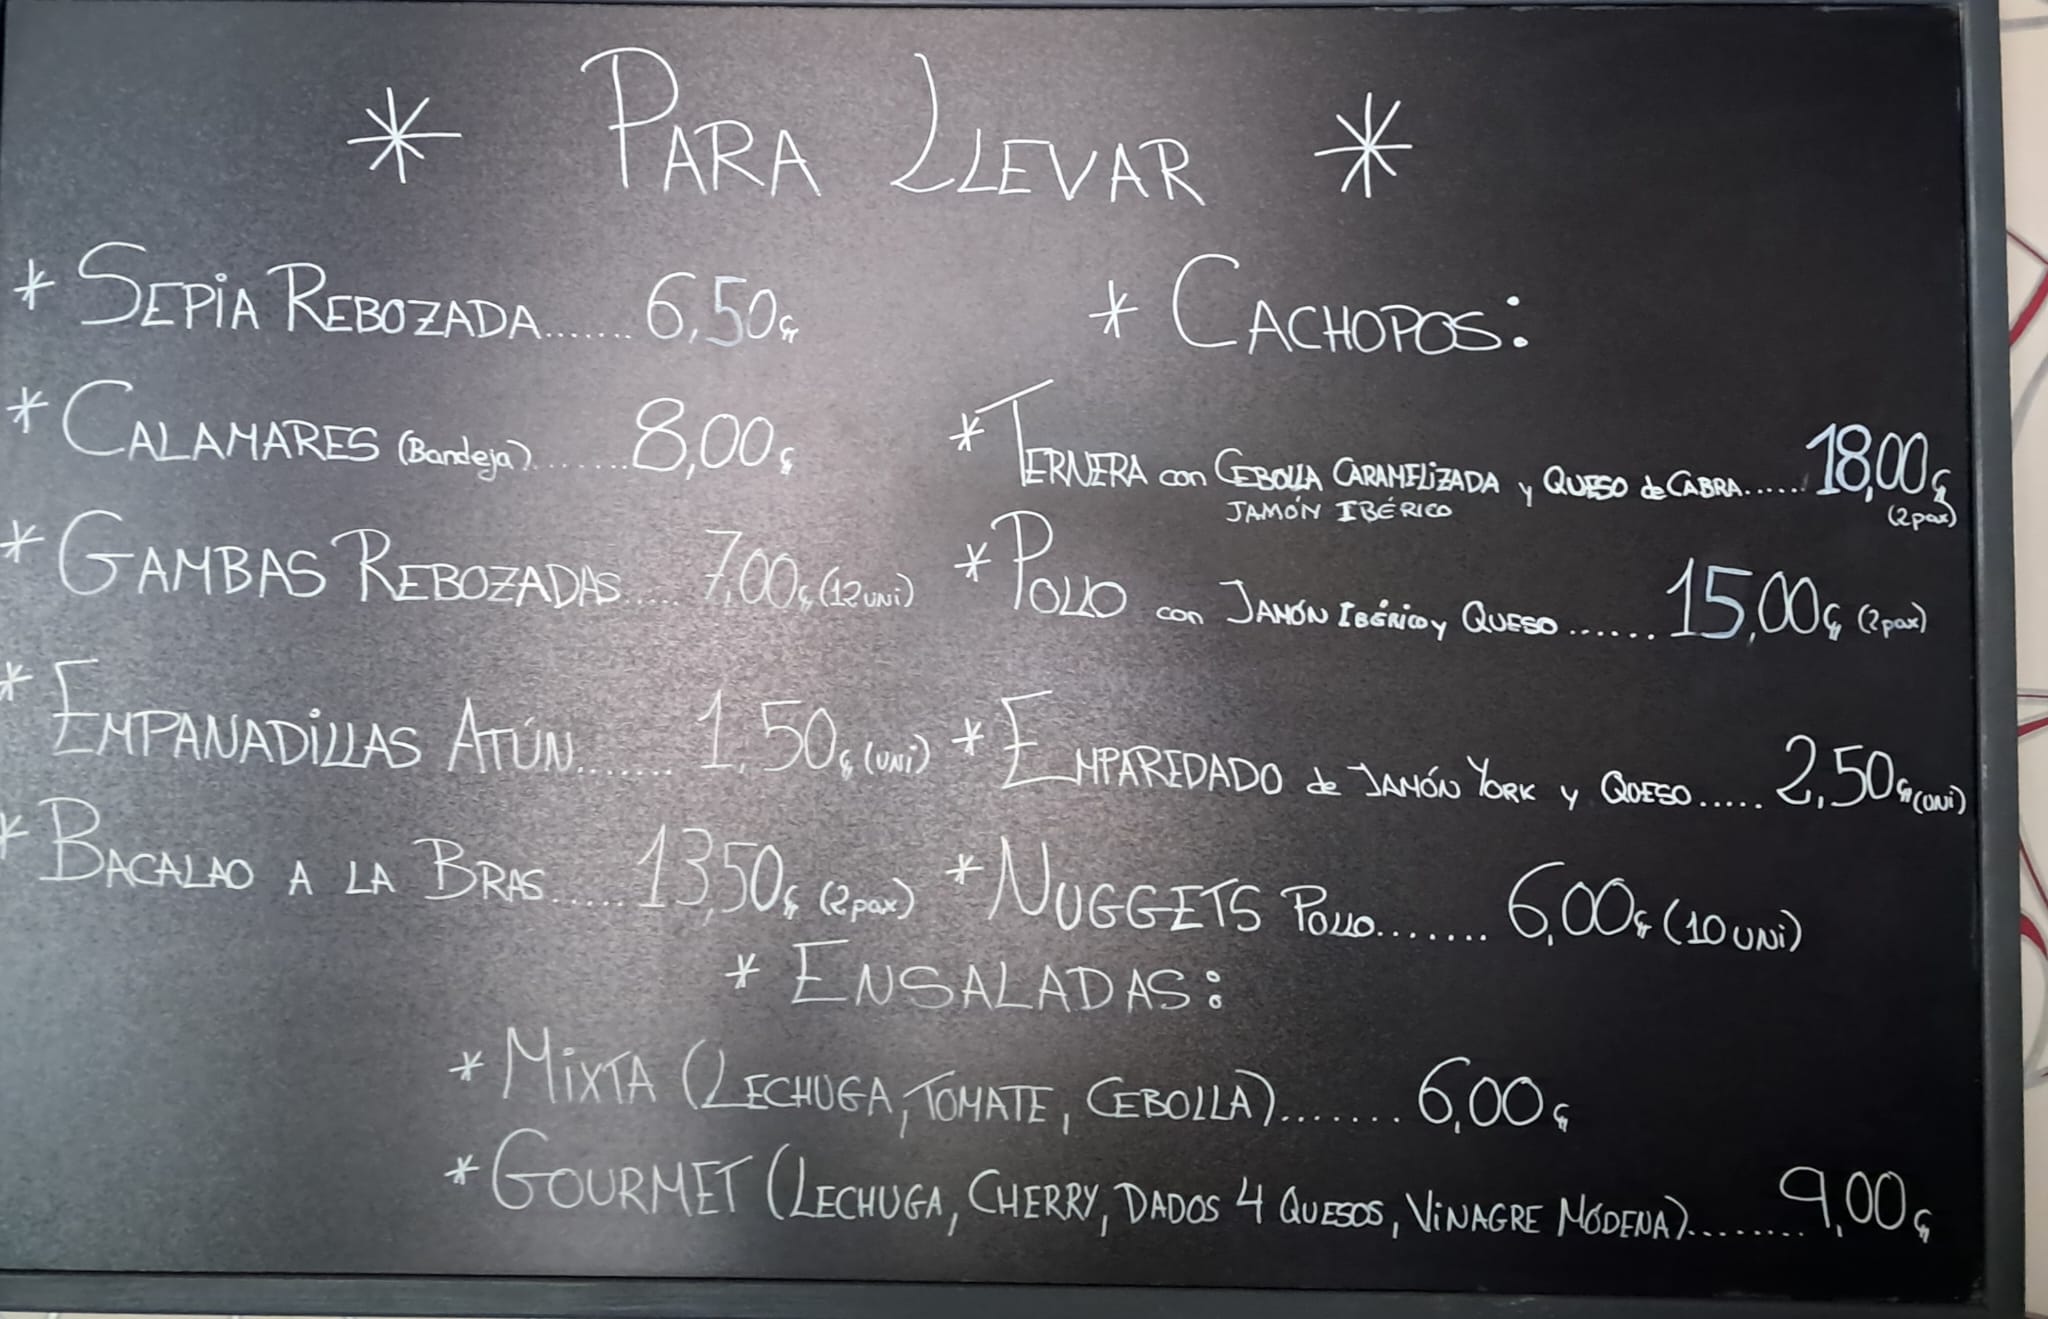 * PARA LLEVAR *
* SEPIA REBOZADA....... 6,50€
* CALAMARES (Bandeja)....... 8,00€
* GAMBAS REBOZADAS..... 7,00€ (12 UNI)
* EMPANADILLAS ATÚN....... 1,50€ (UNI)
* BACALAO A LA BRAS..... 13,50€ (2 pax)
* CACHOPOS:
* TERNERA con CEBOLLA CARAMELIZADA y QUESO de CABRA...... 18,00€
JAMÓN IBÉRICO (2 pax)
* POLLO con JAMÓN IBÉRICO y QUESO...... 15,00€ (2 pax)
* EMPAREDADO de JAMÓN YORK y QUESO..... 2,50€ (UNI)
* NUGGETS POLLO....... 6,00€ (10 UNI)
* ENSALADAS:
* MIXTA (LECHUGA, TOMATE, CEBOLLA)....... 6,00€
* GOURMET (LECHUGA, CHERRY, DADOS 4 QUESOS, VINAGRE MÓDENA)........ 9,00€